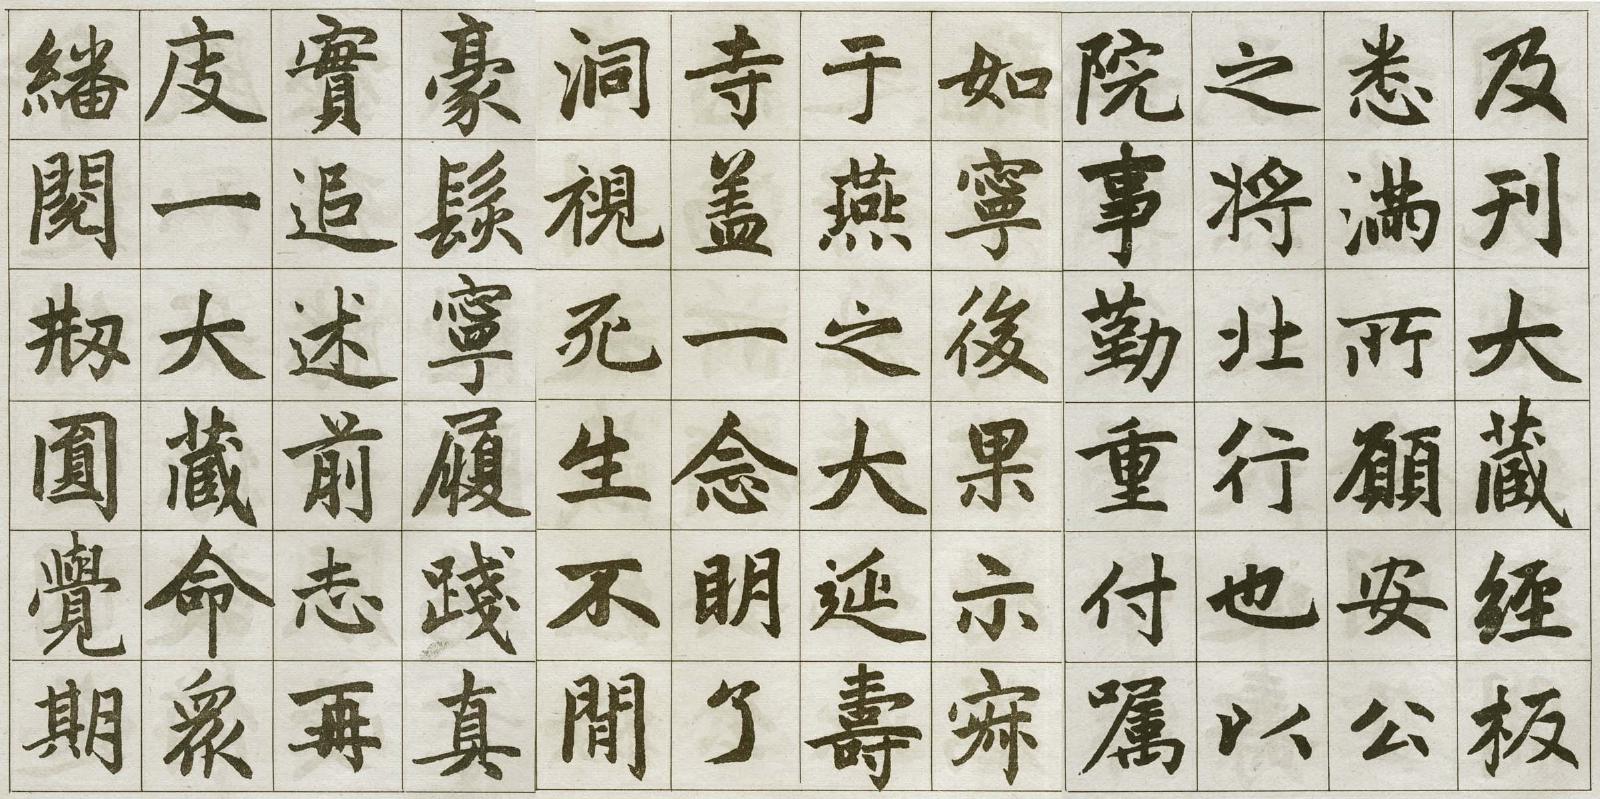 及刊大蔵經板
悉滿所願安公
之將北行也以
院事勤重付嘱
如寧後果示寂
于燕之大延壽
寺盖一念明了
洞視死生不間
豪髮寧履踐真
實追述前志再
庋一大蔵命衆
繙閱刱圓覺期